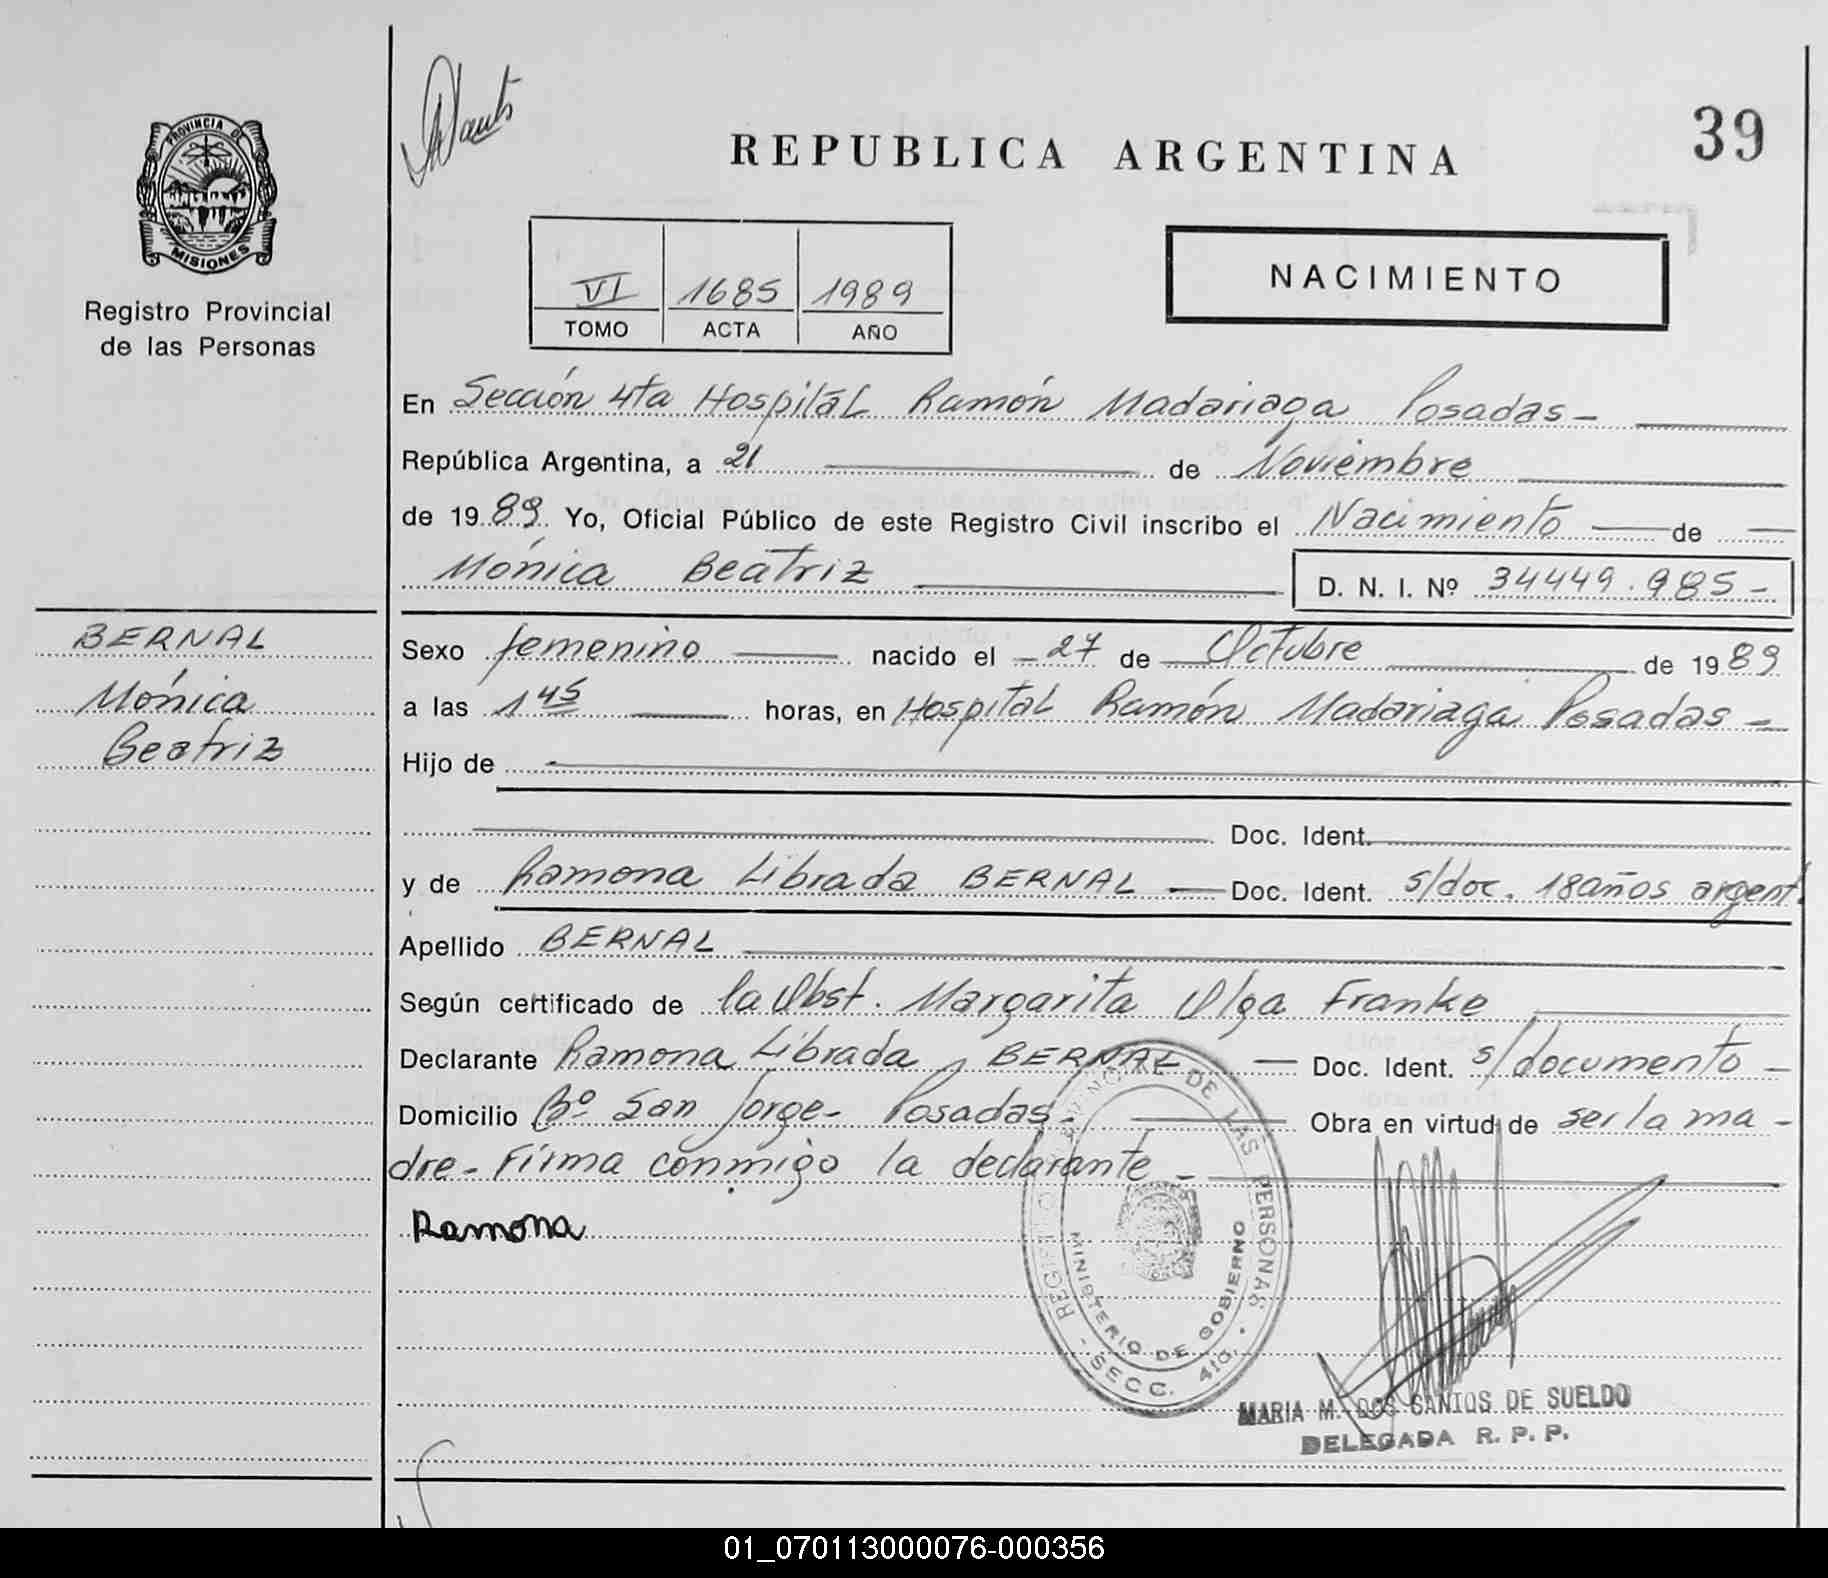 PROVINCIA DE
MISIONES
Registro Provincial
de las Personas
REPUBLICA ARGENTINA
39
VI 1685 1989
TOMO ACTA AÑO
NACIMIENTO
En Sección 4ta Hospital Ramón Madariaga Posadas-
República Argentina, a 21 de Noviembre
de 1989 Yo, Oficial Público de este Registro Civil inscribo el Nacimiento de
Mónica Beatriz D. N. I. Nº 34449.985-
BERNAL
Mónica
Beatriz
Sexo femenino nacido el 27 de Octubre de 1989
a las 1 45 horas, en Hospital Ramón Madariaga Posadas-
Hijo de
Doc. Ident.
y de Ramona Librada BERNAL Doc. Ident. s/doc. 18años argent.
Apellido BERNAL
Según certificado de la Obst. Margarita Olga Franke
Declarante Ramona Librada BERNAL Doc. Ident. s/documento-
Domicilio Bº San Jorge- Posadas- Obra en virtud de ser la ma-
dre- Firma conmigo la declarante-
Ramona
REGISTRO PROVINCIAL DE LAS PERSONAS
MINISTERIO DE GOBIERNO
- SECC. 4ta. -
MARIA M. DOS SANTOS DE SUELDO
DELEGADA R. P. P.
01_070113000076-000356